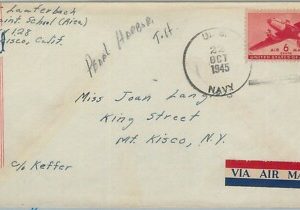 Lauterbach
int School (Area)
128
isco, Calif.
Pearl Harbor
T.H.
U.S.
22
OCT
1945
NAVY
AIR MAIL
6
CENTS
UNITED STATES OF
Miss Joan Lang
King Street
Mt. Kisco, N.Y.
c/o Keffer
VIA AIR MA